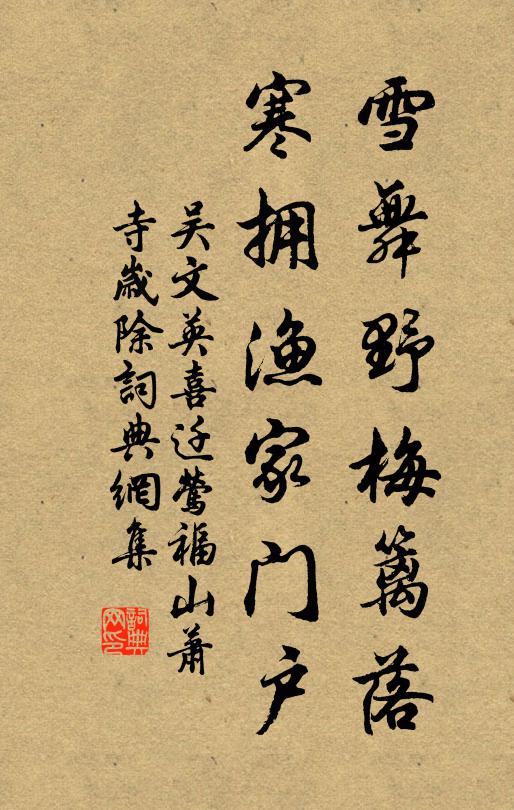 雪舞野梅篱落
寒拥渔家门户
吴文英喜迁莺福山萧
寺歲除詞典網集
詞典网印